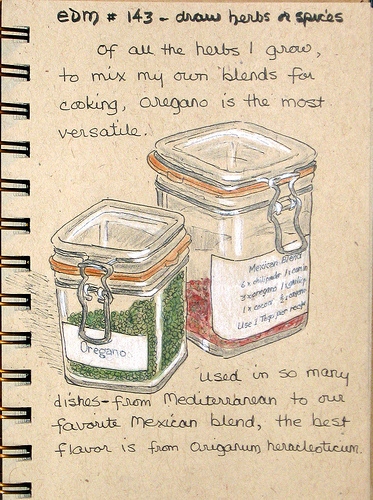 EDM # 143 - draw herbs or spices
Of all the herbs I grow,
to mix my own blends for
cooking, oregano is the most
versatile.
Mexican Blend
6 x chili powder 1 x cumin
3 x oregano 1
1 x cocoa
Use 1 Tbsp. per recipe
Oregano
Used in so many
dishes - from Mediterranean to our
favorite Mexican blend, the best
flavor is from Origanum heracleoticum.